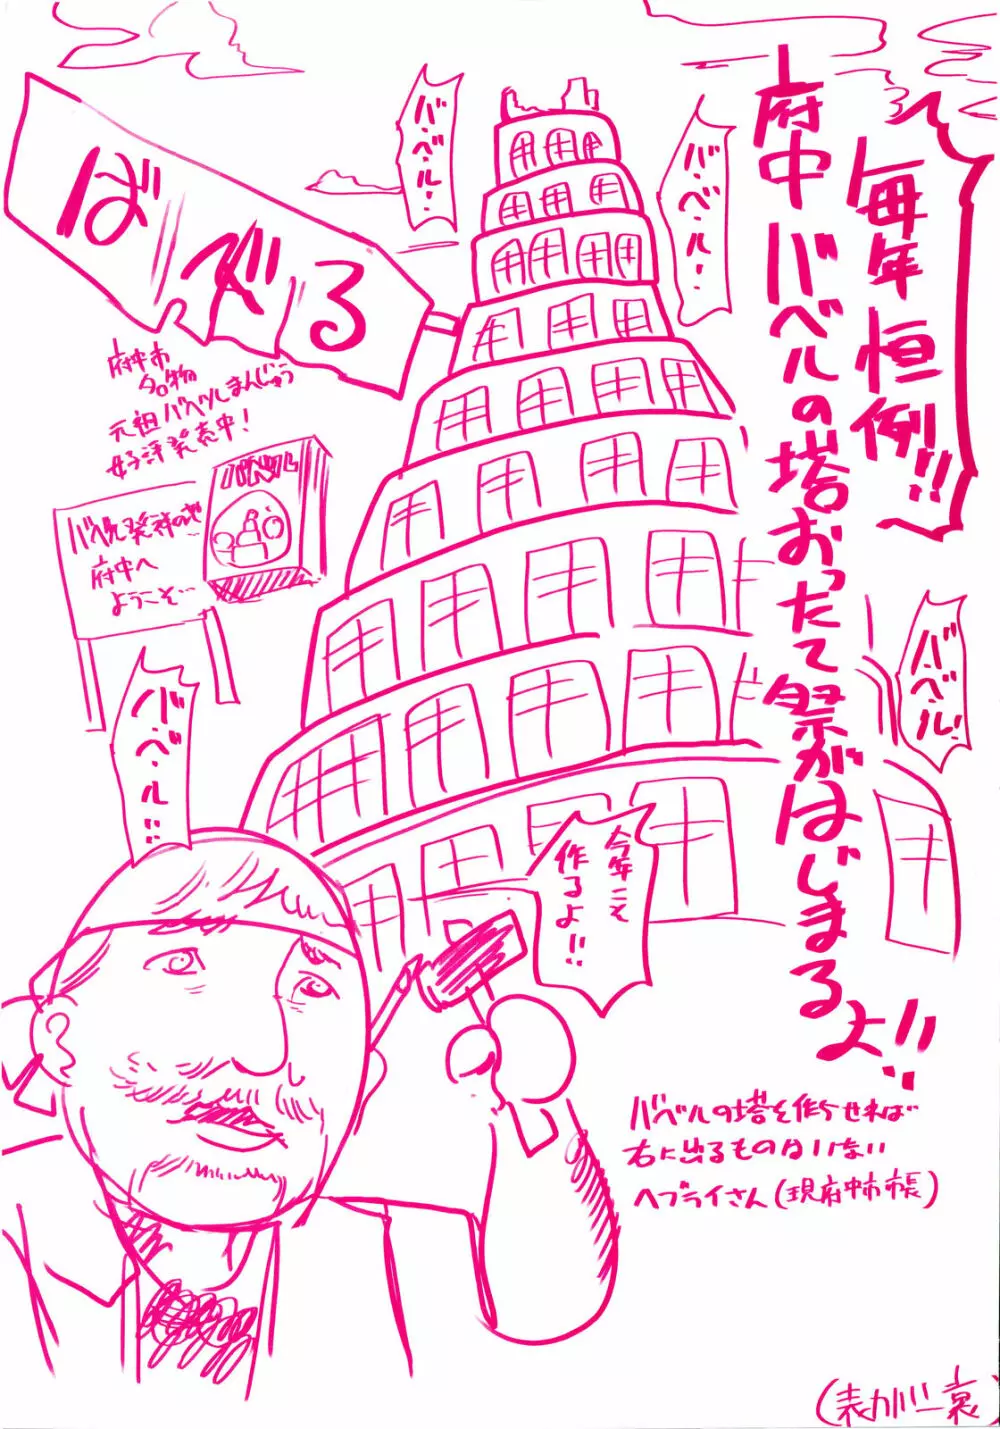 毎年恒例!!
府中バベルの塔おったて祭がはじまるよ!!
バ・ベ・ル…
バ・ベ・ル…
ばべる
府中市
名物
元祖バベルまんじゅう
好評発売中!
バベル
バベル発祥の地
府中へ
ようこそ…
バ・ベ・ル!
バ・ベ・ル…
今年こそ
作るよ!!
バベルの塔を作らせれば
右に出るものはいない
ヘブライさん(現府中市市長)
(表カバー裏)